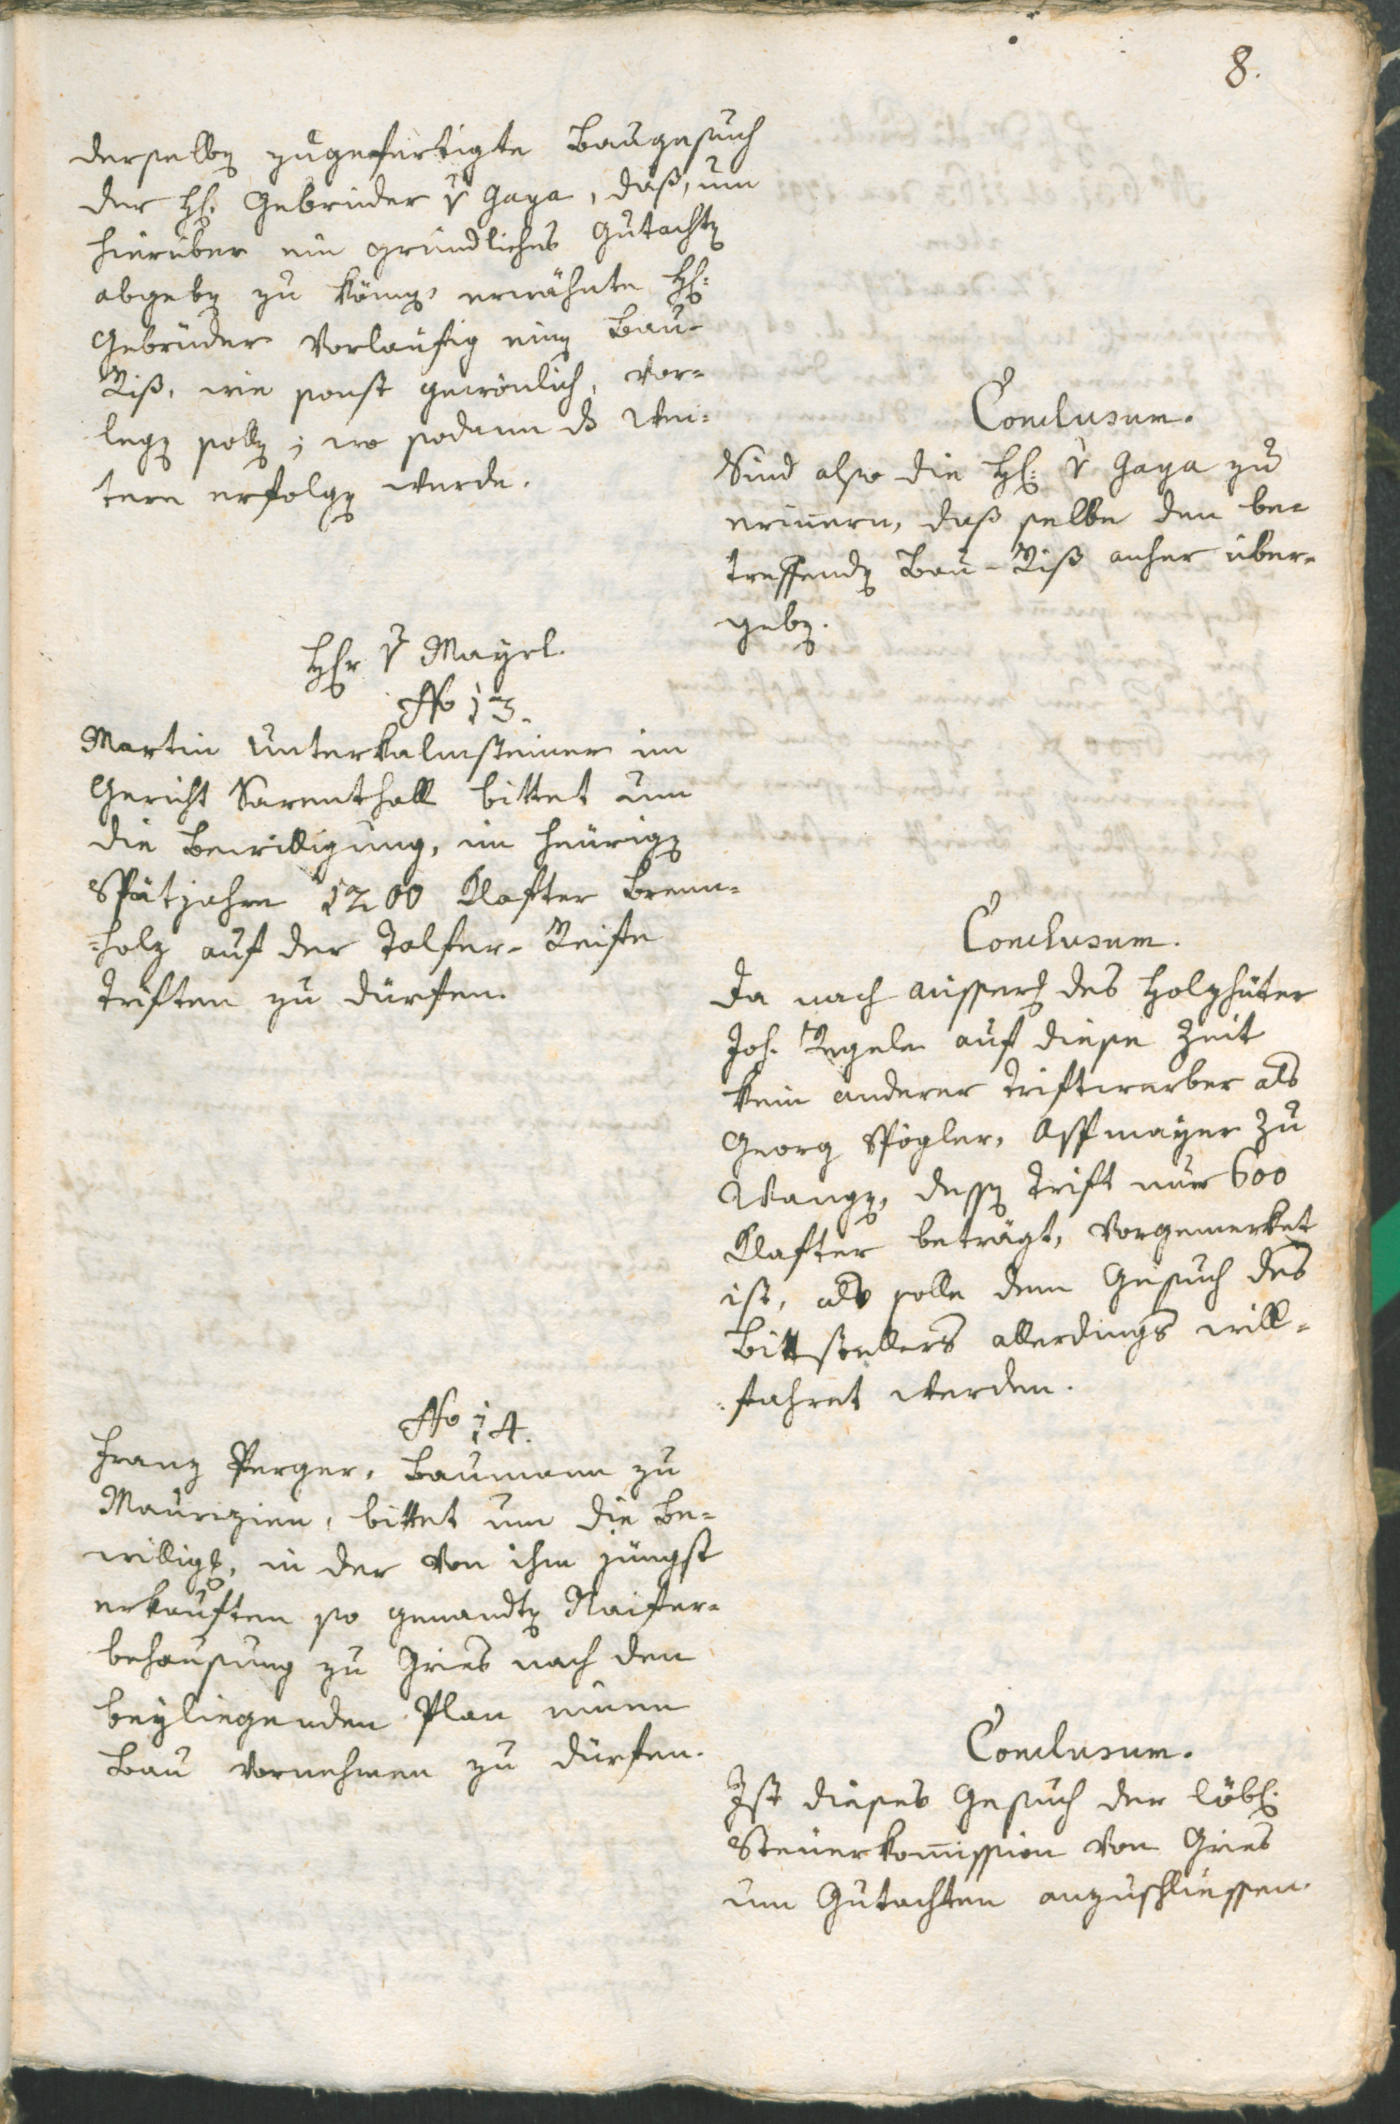 8.
derselben zugefertigte Baugesuch
der H: Gebrüder v Gaya, daß, um
hierüber ein gründliches Gutachten
abgeben zu können, erwähnte H:
Gebrüder vorläufig einen Bau-
Riß, wie sonst gewönlich, vor-
legen sollen; wo sodann ds Wei-
tere erfolgen werde.
Conclusum.
Sind also die H: v Gaya zu
erinnern, daß selbe den be-
treffenden Bau-Riß anher über-
geben.
Hr v Mayrl.
No 13.
Martin Unterkalmsteiner im
Gericht Sarenthall bittet um
die Bewilligung, im heurigen
Spätjahre 1200 Klafter Brenn-
holz auf der Talfer-Reiste
triften zu dürfen.
Conclusum.
Da nach ausser des Holzhüter
Joh. Regele auf diese Zeit
kein anderer Triftwerber als
Georg Spögler, Affmayer zu
Wangen, dessen Trift nur 600
Klafter beträgt, vorgemerket
ist, als solle dem Gesuch des
Bittstellers allerdings will-
fahret werden.
No 14.
Franz Perger, Baumann zu
Maurizien, bittet um die Be-
willigg, in der von ihm jüngst
erkauften so genandten Naifer-
behausung zu Gries nach dem
beyliegenden Plan einen
Bau vornehmen zu dürfen.
Conclusum.
Ist dieses Gesuch der löbl:
Steuerkom̅ission von Gries
um Gutachten anzuschliessen.